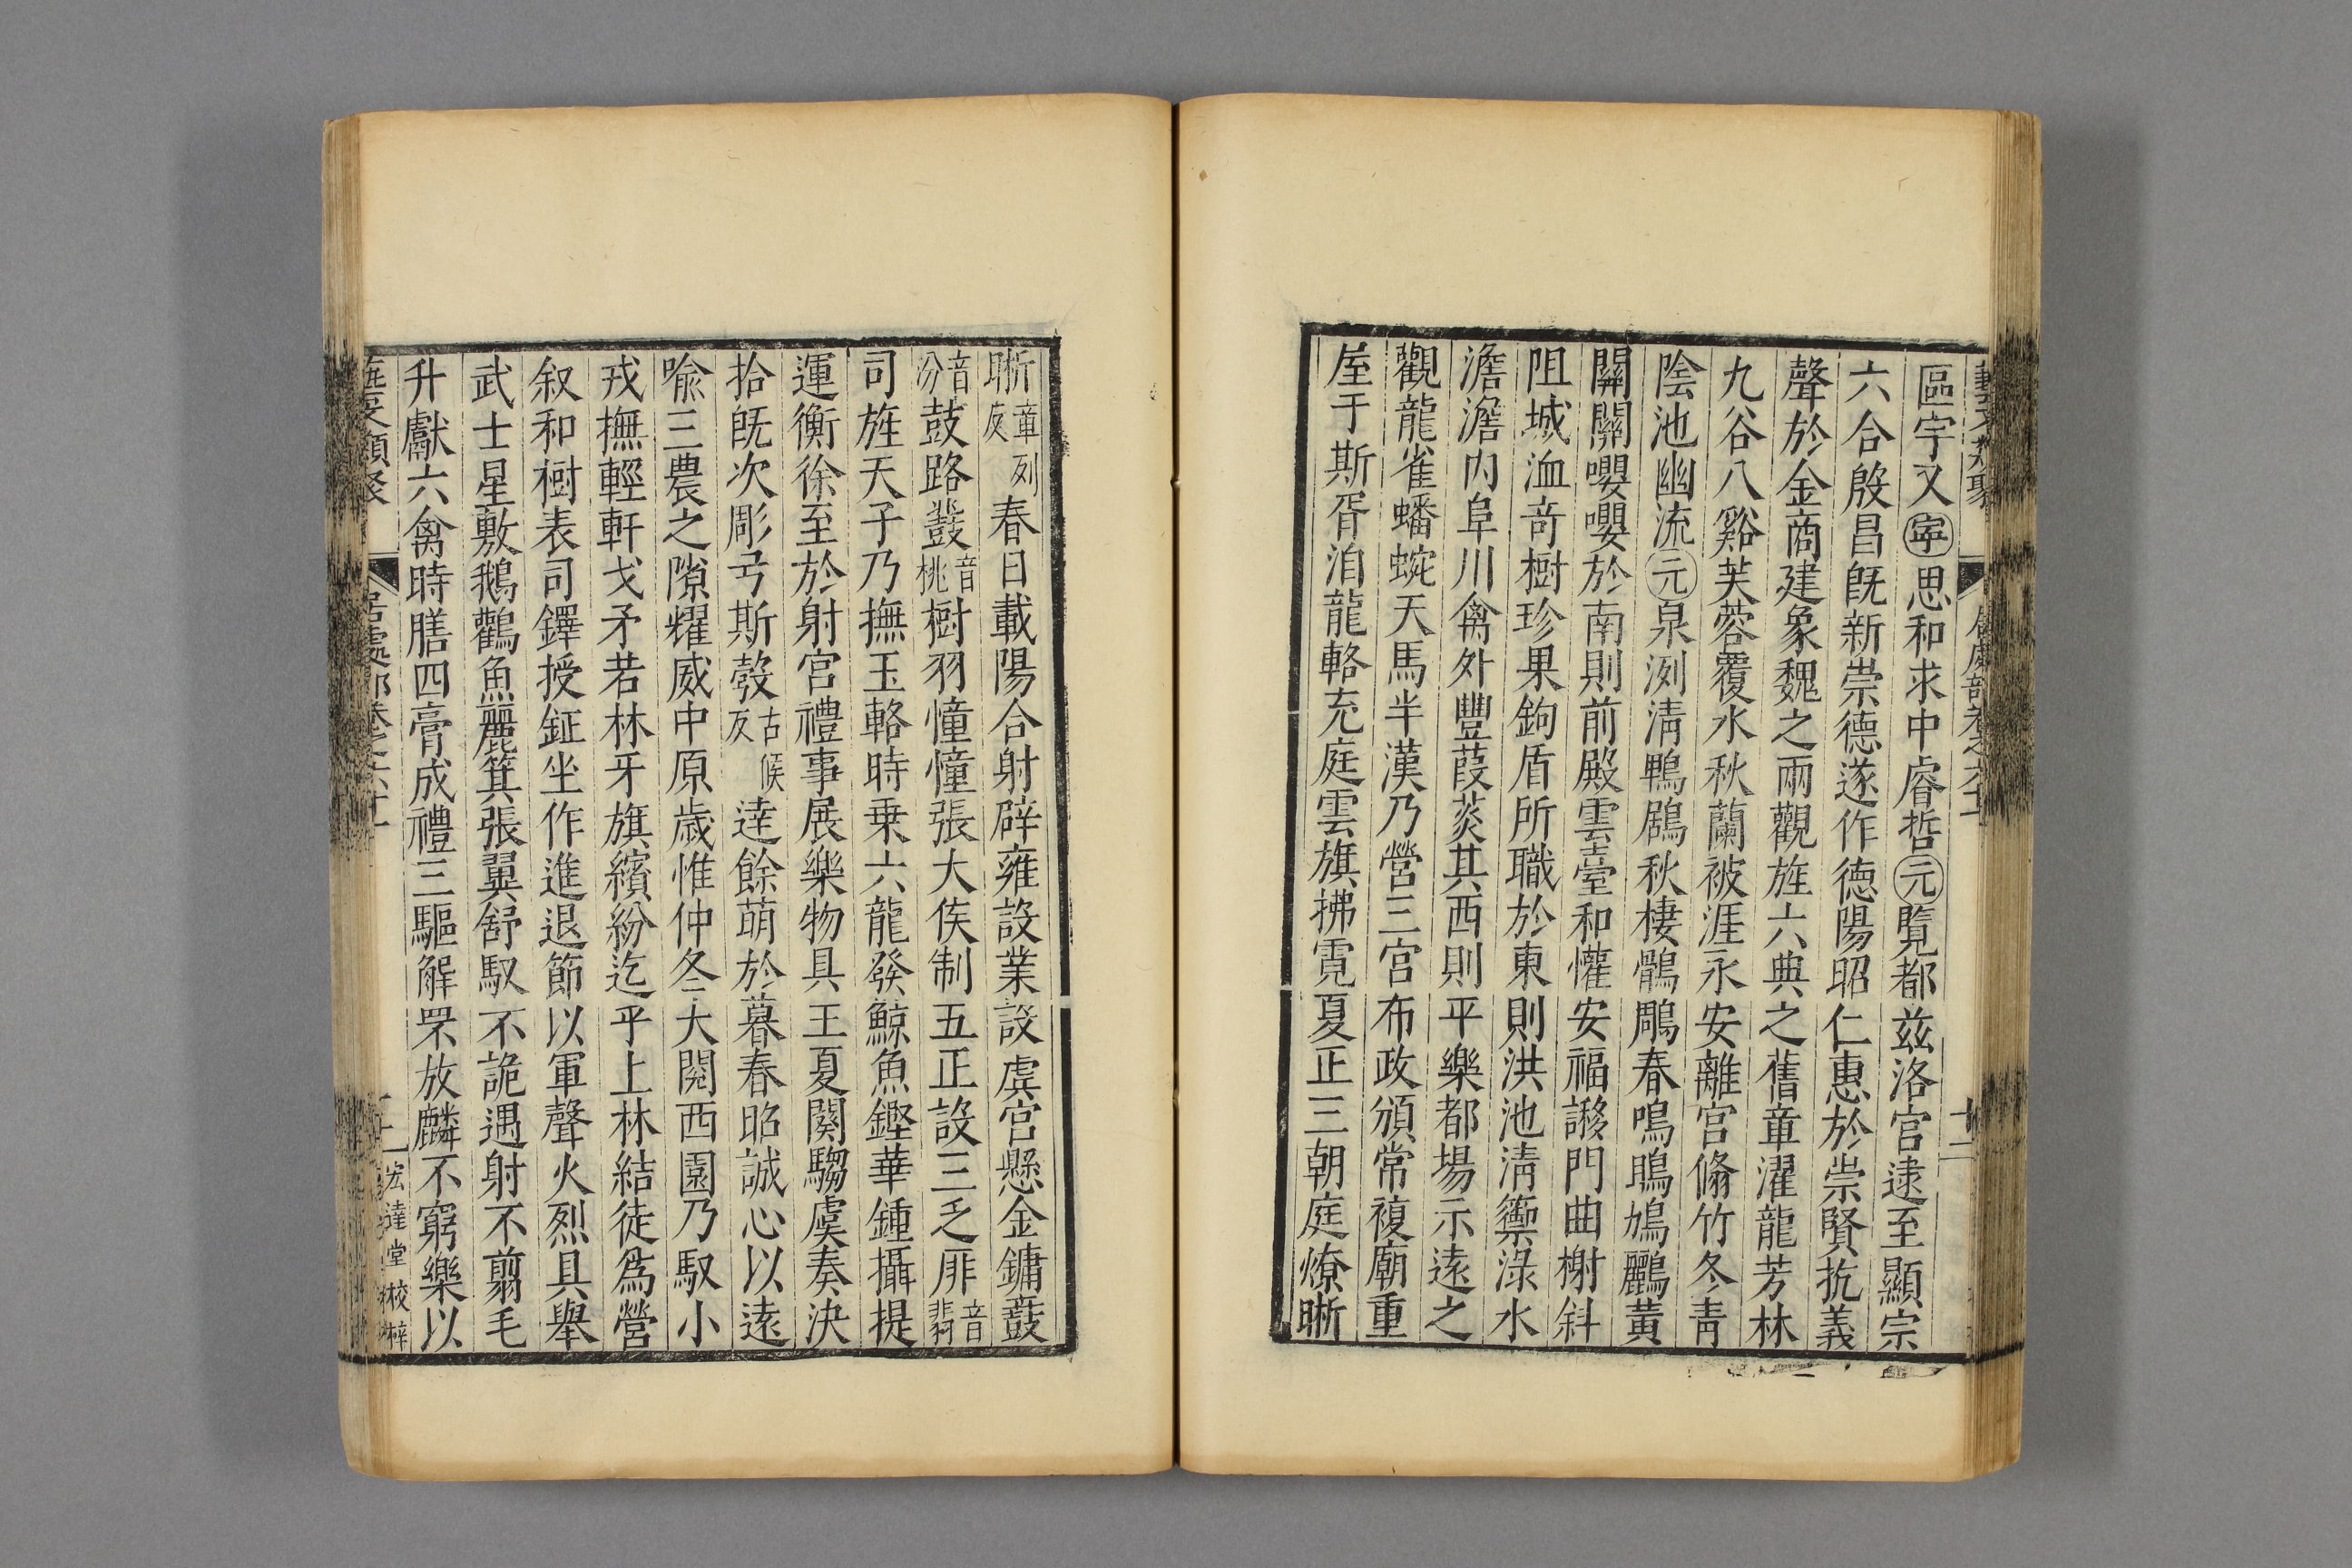 藝文類聚 居處部卷之六十一 十二
區宇乂寍思和求中睿哲元覽都兹洛宫逮至顯宗
六合殷昌旣新崇德遂作德陽昭仁惠於崇賢抗義
聲於金商建象魏之兩觀旌六典之舊章濯龍芳林
九谷八谿芙蓉覆水秋蘭被涯永安離宫脩竹冬靑
陰池幽流元泉洌淸鵯鶋秋棲鶻鵰春鳴鵙鳩鸝黃
關關嚶嚶於南則前殿雲臺和懽安福謻門曲榭斜
阻城洫竒樹珍果鉤盾所職於東則洪池淸籞渌水
澹澹内阜川禽外豐葭菼其西則平樂都場示遠之
觀龍雀蟠蜿天馬半漢乃營三宫布政頒常複廟重
屋于斯胥洎龍輅充庭雲旗拂霓夏正三朝庭燎晣
晣章列庭春日載陽合射辟雍設業設虡宫懸金鏞鼖
音汾鼓路鼗音桃樹羽幢幢張大侯制五正設三乏厞音翡
司旌天子乃撫玉輅時乗六龍發鯨魚鏗華鍾攝提
運衡徐至於射宫禮事展樂物具王夏闋騶虞奏決
拾旣次彫弓斯彀古候反逹餘萌於暮春昭誠心以遠
喻三農之隙耀威中原歲惟仲冬大閱西園乃馭小
戎撫輕軒戈矛若林牙旗繽紛迄乎上林結徒爲營
叙和樹表司鐸授鉦坐作進退節以軍聲火烈具舉
武士星敷鵝鸛魚麗箕張翼舒馭不詭遇射不翦毛
升獻六禽時膳四膏成禮三驅解罘放麟不窮樂以
藝文類聚 居處部卷之六十一 十二 宏達堂校梓